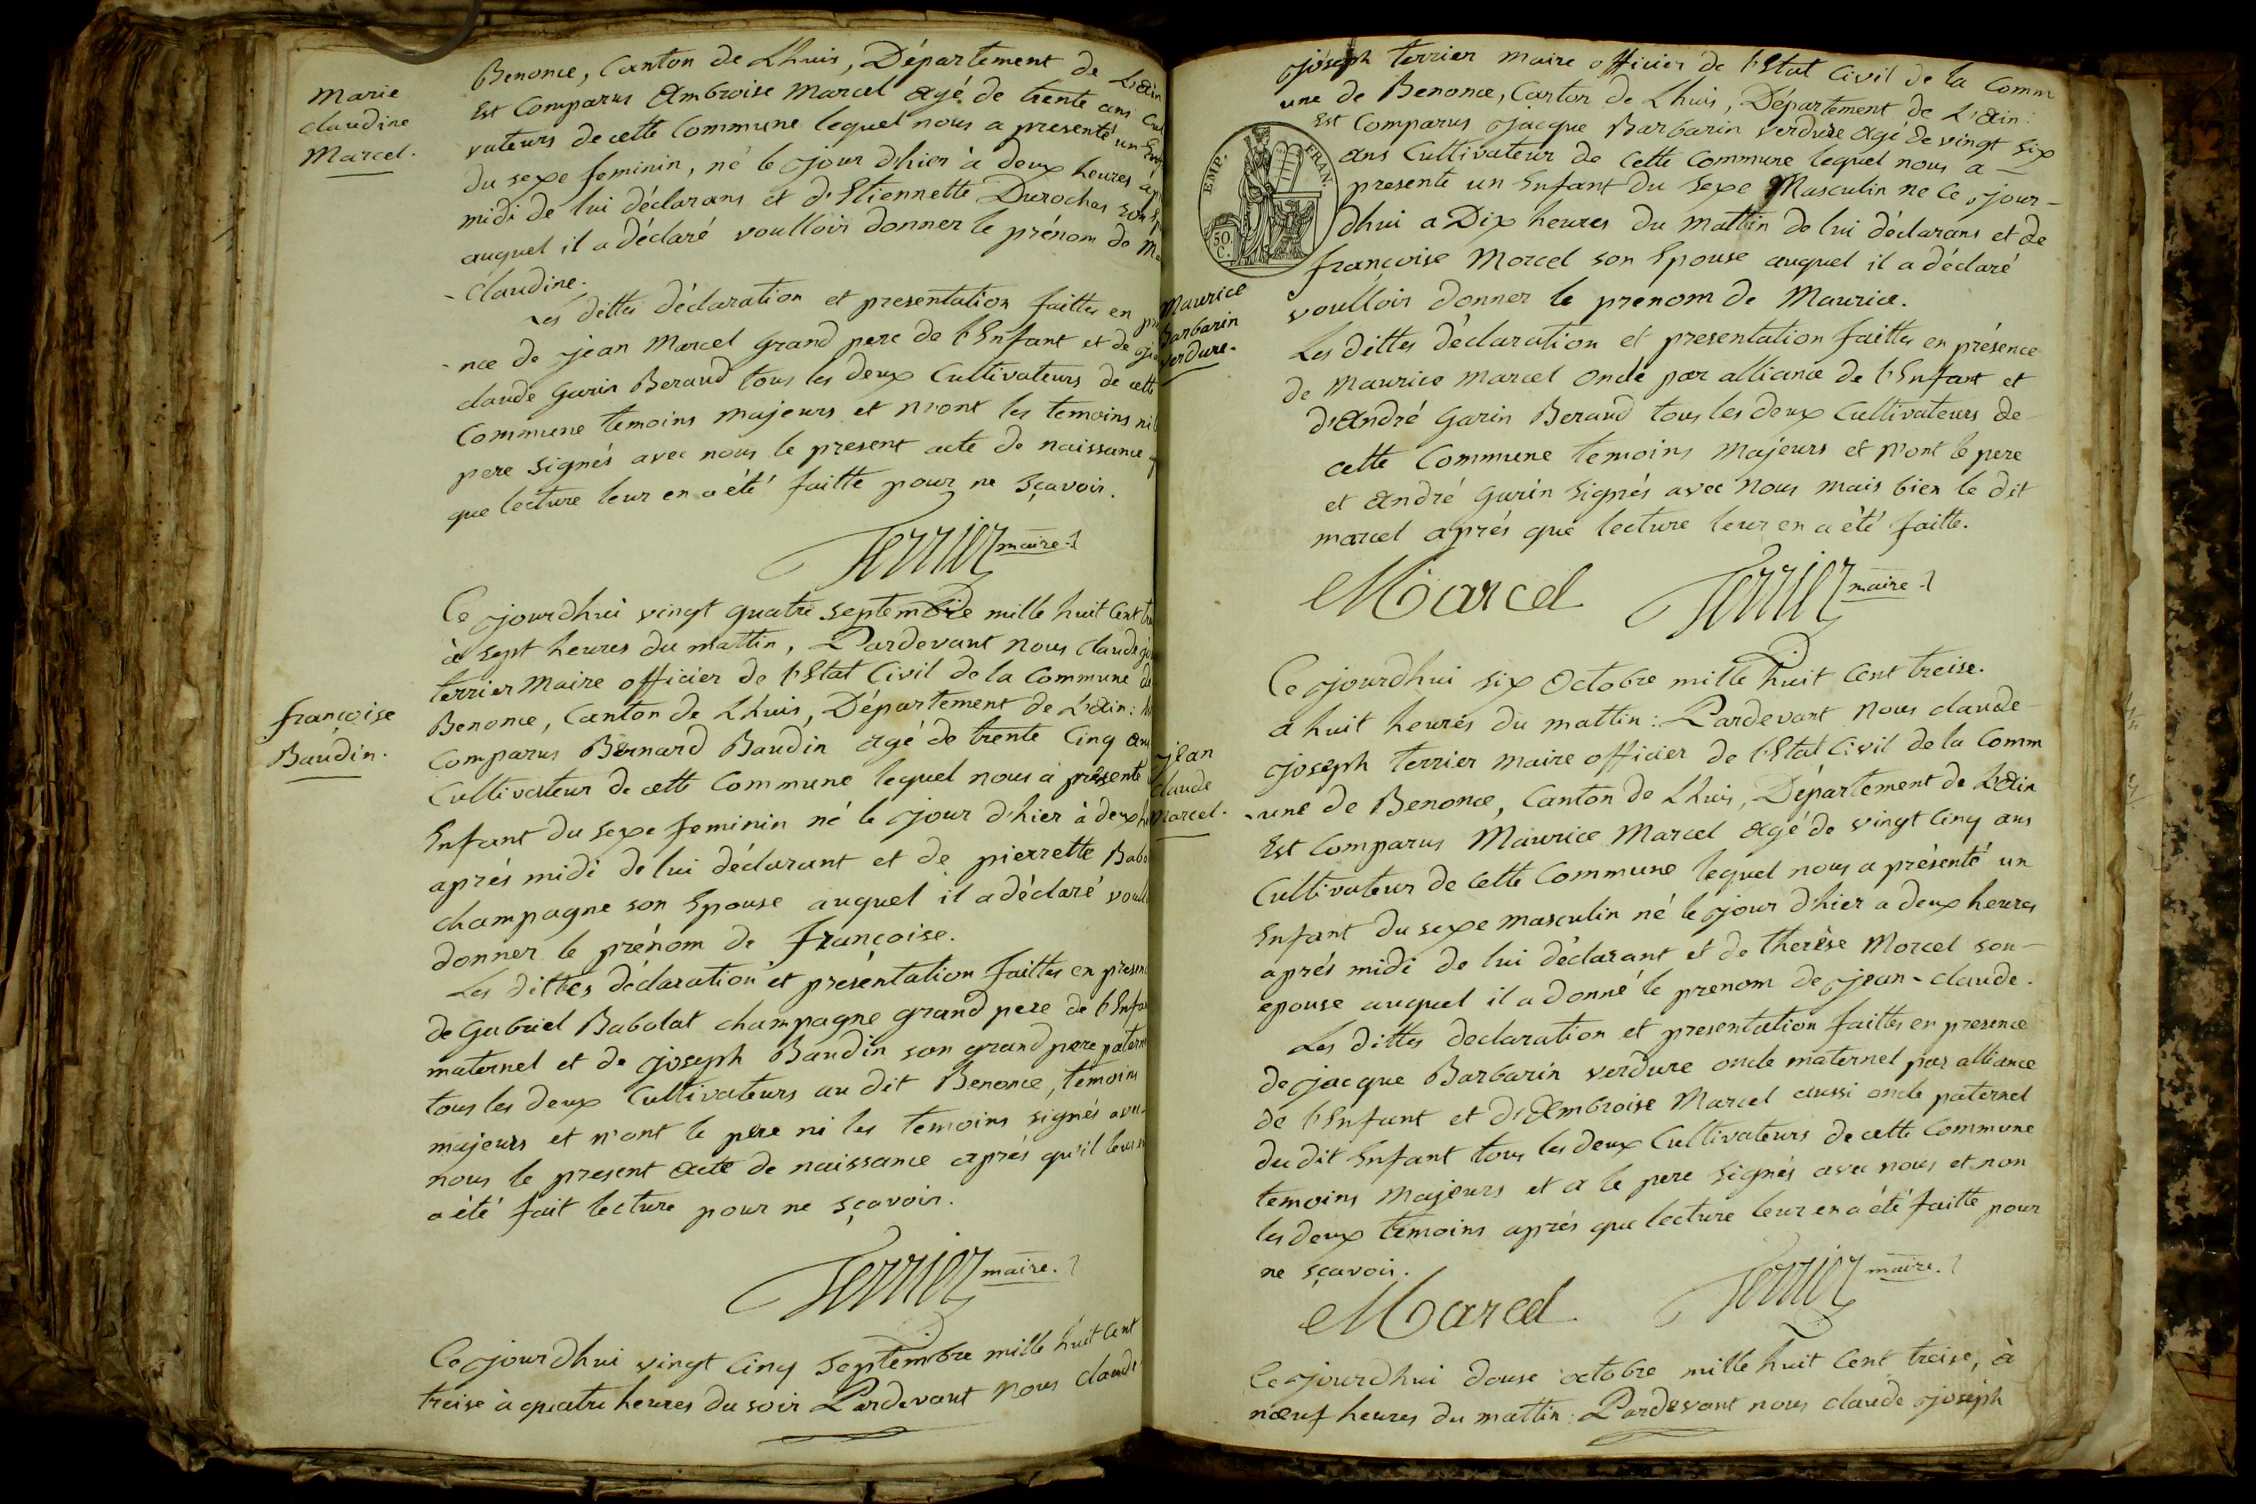 Marie
claudine
Marcel.
Benonce, Canton de Lhuis, Département de L'ain
Est Comparus Ambroise Marcel agé de trente ans Cul
vateurs de cette Commune lequel nous a presenté un
du sexe feminin, né le jour d'hier à deux heures ap
midi de lui déclarans et d'Etiennette Durochas son
auquel il a déclaré voulloir donner le prénom de Ma
- claudine.
Les dittes déclaration et presentation faittes en pre
- nce de jean Marcel grand pere de l'Enfant et de
claude Garin Beraud tous les deux Cultivateurs de cette
Commune temoins majeurs et n'ont les temoins ni le
pere signés avec nous le present acte de naissance
que lecture leur en a été faitte pour ne sçavoir.
Terrier maire
françoise
Baudin.
Ce jourdhui vingt quatre septembre mille huit Cent
à sept heures du mattin, Pardevant nous claude
terrier maire officier de l'Etat Civil de la Commune de
Benonce, Canton de Lhuis, Département de L'ain:
Comparus Bernard Baudin agé de trente Cinq ans
Cultivateur de cette Commune lequel nous à présenté
Enfant du sexe feminin né le jour d'hier à deux
aprés midi de lui déclarant et de pierrette Babo
champagne son Epouse auquel il a déclaré voull
donner le prénom de françoise.
Les dittes déclaration et présentation faittes en presen
de Gabriel Babolat champagne grand pere de l'Enfa
maternel et de joseph Baudin son grand pere patern
tous les deux Cultivateurs au dit Benonce, temoins
majeurs et n'ont le pere ni les temoins signés avec
nous le present acte de naissance aprés qu'il leur
a été fait lecture pour ne sçavoir.
Terrier maire.
Ce jourdhui vingt Cinq Septembre mille huit Cent
treise à quatre heures du soir Pardevant nous claude
joseph terrier maire officier de l'Etat Civil de la Comm
une de Benonce, Canton de Lhuis, Département de L'ain:
Est Comparus jacque Barbarin verdure agé de vingt six
ans Cultivateur de cette Commune lequel nous a
presenté un Enfant du sexe Masculin né Ce jour-
dhui a Dix heures du mattin de lui déclarans et de
françoise Morcel son Epouse auquel il a déclaré
voulloir donner le prenom de Maurice.
EMP. FRAN.
50. C.
Maurice
Barbarin
verdure.
Les dittes déclaration et presentation faittes en présence
de Maurice Marcel oncle par alliance de l'Enfant et
d'André Garin Beraud tous les deux Cultivateurs de
cette Commune temoins majeurs et n'ont le pere
et André Garin signés avec nous mais bien le dit
marcel aprés que lecture leur en a été faitte.
Marcel Terrier maire
jean
claude
Marcel.
Ce jourdhui six Octobre mille huit Cent treise.
a huit heurés du mattin: Pardevant nous claude
joseph terrier maire officier de l'Etat Civil de la Comm
- une de Benonce, Canton de Lhuis, Département de L'ain
Est Comparus Maurice Marcel agé de vingt Cinq ans
Cultivateur de cette Commune lequel nous a présenté un
Enfant du sexe masculin né le jour d'hier a deux heures
aprés midi de lui déclarant et de therèse Morcel son
epouse auquel il a donné le prenom de jean-claude.
Les dittes declaration et presentation faittes en presence
de jacque Barbarin verdure oncle maternel par alliance
de l'Enfant et d'Ambroise Marcel aussi oncle paternel
du dit Enfant tous les deux Cultivateurs de cette Commune
temoins majeurs et a le pere signés avec nous et non
les deux temoins aprés que lecture leur en a été faitte pour
ne sçavoir.
Marcel Terrier maire.
Ce jourdhui douse octobre mille huit Cent treise, à
nœuf heures du mattin: Pardevant nous claude joseph